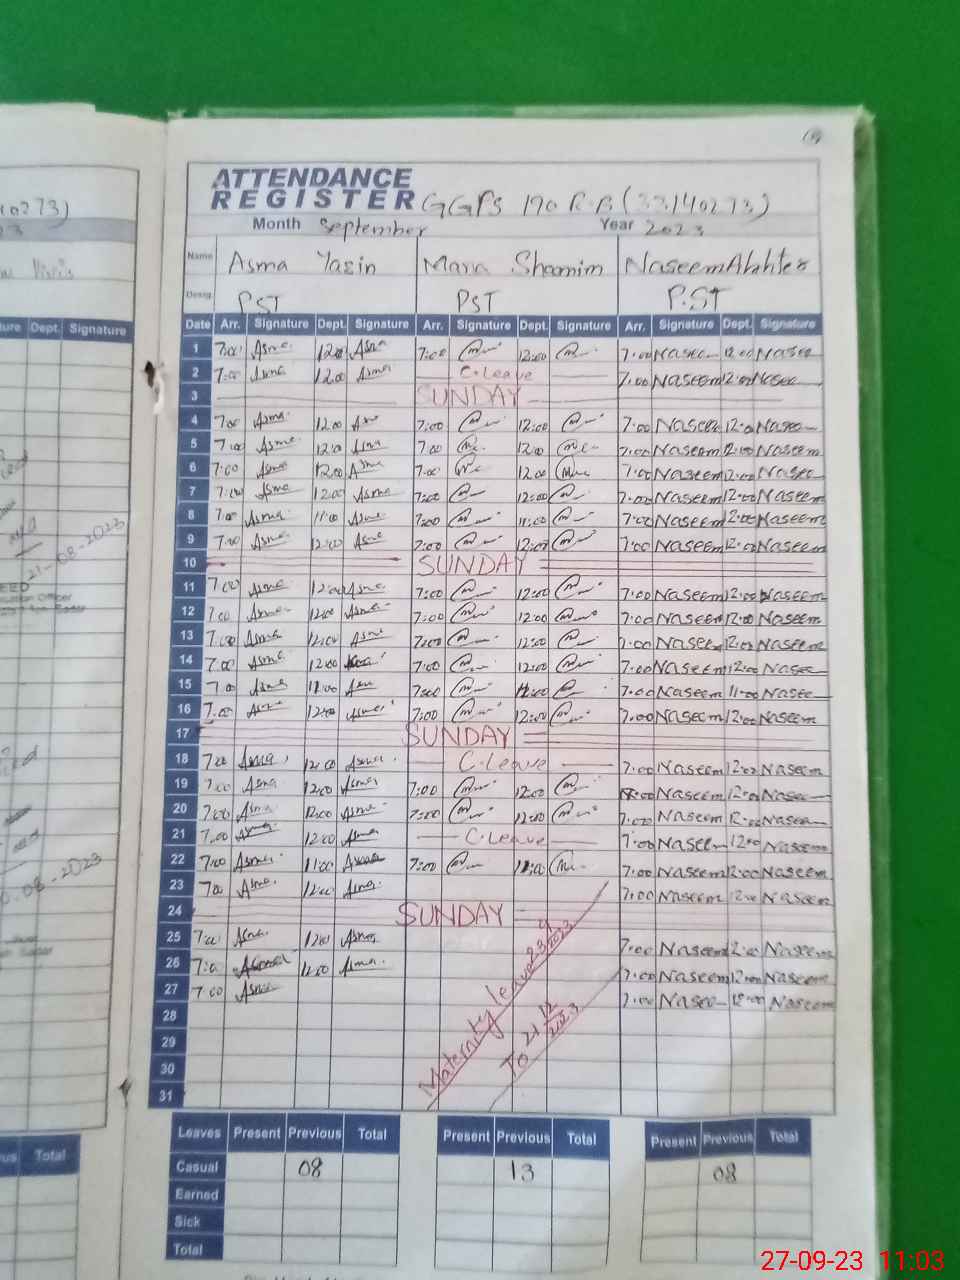 ATTENDANCE
REGISTER GGPS 190 R.B (33140273)
Month September Year 2023
Name Asma Yasin Maria Shamim Naseem Akhter
Desig. PST PST P.ST
Date Arr. Signature Dept. Signature Arr. Signature Dept. Signature Arr. Signature Dept. Signature
1 7:00 Asma 12:00 Asma 7:00 12:00 7:00 Naseem 12:00 Naseem
2 7:00 Asma 12:00 Asma C.Leave 7:00 Naseem 12:00 Naseem
3 SUNDAY
4 7:00 Asma 12:00 Asma 7:00 12:00 7:00 Naseem 12:00 Naseem
5 7:00 Asma 12:00 Asma 7:00 12:00 7:00 Naseem 12:00 Naseem
6 7:00 Asma 12:00 Asma 7:00 12:00 7:00 Naseem 12:00 Naseem
7 7:00 Asma 12:00 Asma 7:00 12:00 7:00 Naseem 12:00 Naseem
8 7:00 Asma 11:00 Asma 7:00 11:00 7:00 Naseem 12:00 Naseem
9 7:00 Asma 12:00 Asma 7:00 12:00 7:00 Naseem 12:00 Naseem
10 SUNDAY
11 7:00 Asma 12:00 Asma 7:00 12:00 7:00 Naseem 12:00 Naseem
12 7:00 Asma 12:00 Asma 7:00 12:00 7:00 Naseem 12:00 Naseem
13 7:00 Asma 12:00 Asma 7:00 12:00 7:00 Naseem 12:00 Naseem
14 7:00 Asma 12:00 7:00 12:00 7:00 Naseem 12:00 Naseem
15 7:00 Asma 11:00 Asma 7:00 11:00 7:00 Naseem 11:00 Naseem
16 7:00 Asma 12:00 Asma 7:00 12:00 7:00 Naseem 12:00 Naseem
17 SUNDAY
18 7:00 Asma 12:00 Asma C.Leave 7:00 Naseem 12:00 Naseem
19 7:00 Asma 12:00 Asma 7:00 12:00 7:00 Naseem 12:00 Naseem
20 7:00 Asma 12:00 Asma 7:00 12:00 7:00 Naseem 12:00 Naseem
21 7:00 Asma 12:00 Asma C.Leave 7:00 Naseem 12:00 Naseem
22 7:00 Asma 11:00 Asma 7:00 11:00 7:00 Naseem 12:00 Naseem
23 7:00 Asma 12:00 Asma 7:00 Naseem 12:00 Naseem
24 SUNDAY
25 7:00 Asma 12:00 Asma 7:00 Naseem 12:00 Naseem
26 7:00 Asma 12:00 Asma 7:00 Naseem 12:00 Naseem
27 7:00 Asma 7:00 Naseem 12:00 Naseem
28
29
30
31
Maternity leave 23 9 2023
To 21 12 2023
Leaves Present Previous Total Present Previous Total Present Previous Total
Casual 08 13 08
Earned
Sick
Total
Dept. Signature
21-08-2023
08-2023
Total
27-09-23 11:03